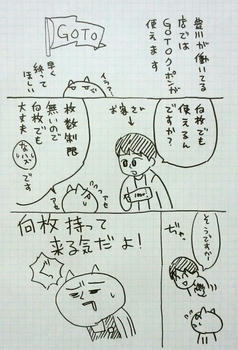 豊川が働いてる
店では
GOTOクーポンが
使えます
GOTO
早く
終って
ほしい
何枚でも
使えるん
ですか?
お客さん
1000
枚数制限
無いので
何枚でも
大丈夫
(ないハズ)
です
アセ
アセ
そうですかー
ぢゃ
何枚持って
来る気だよ!